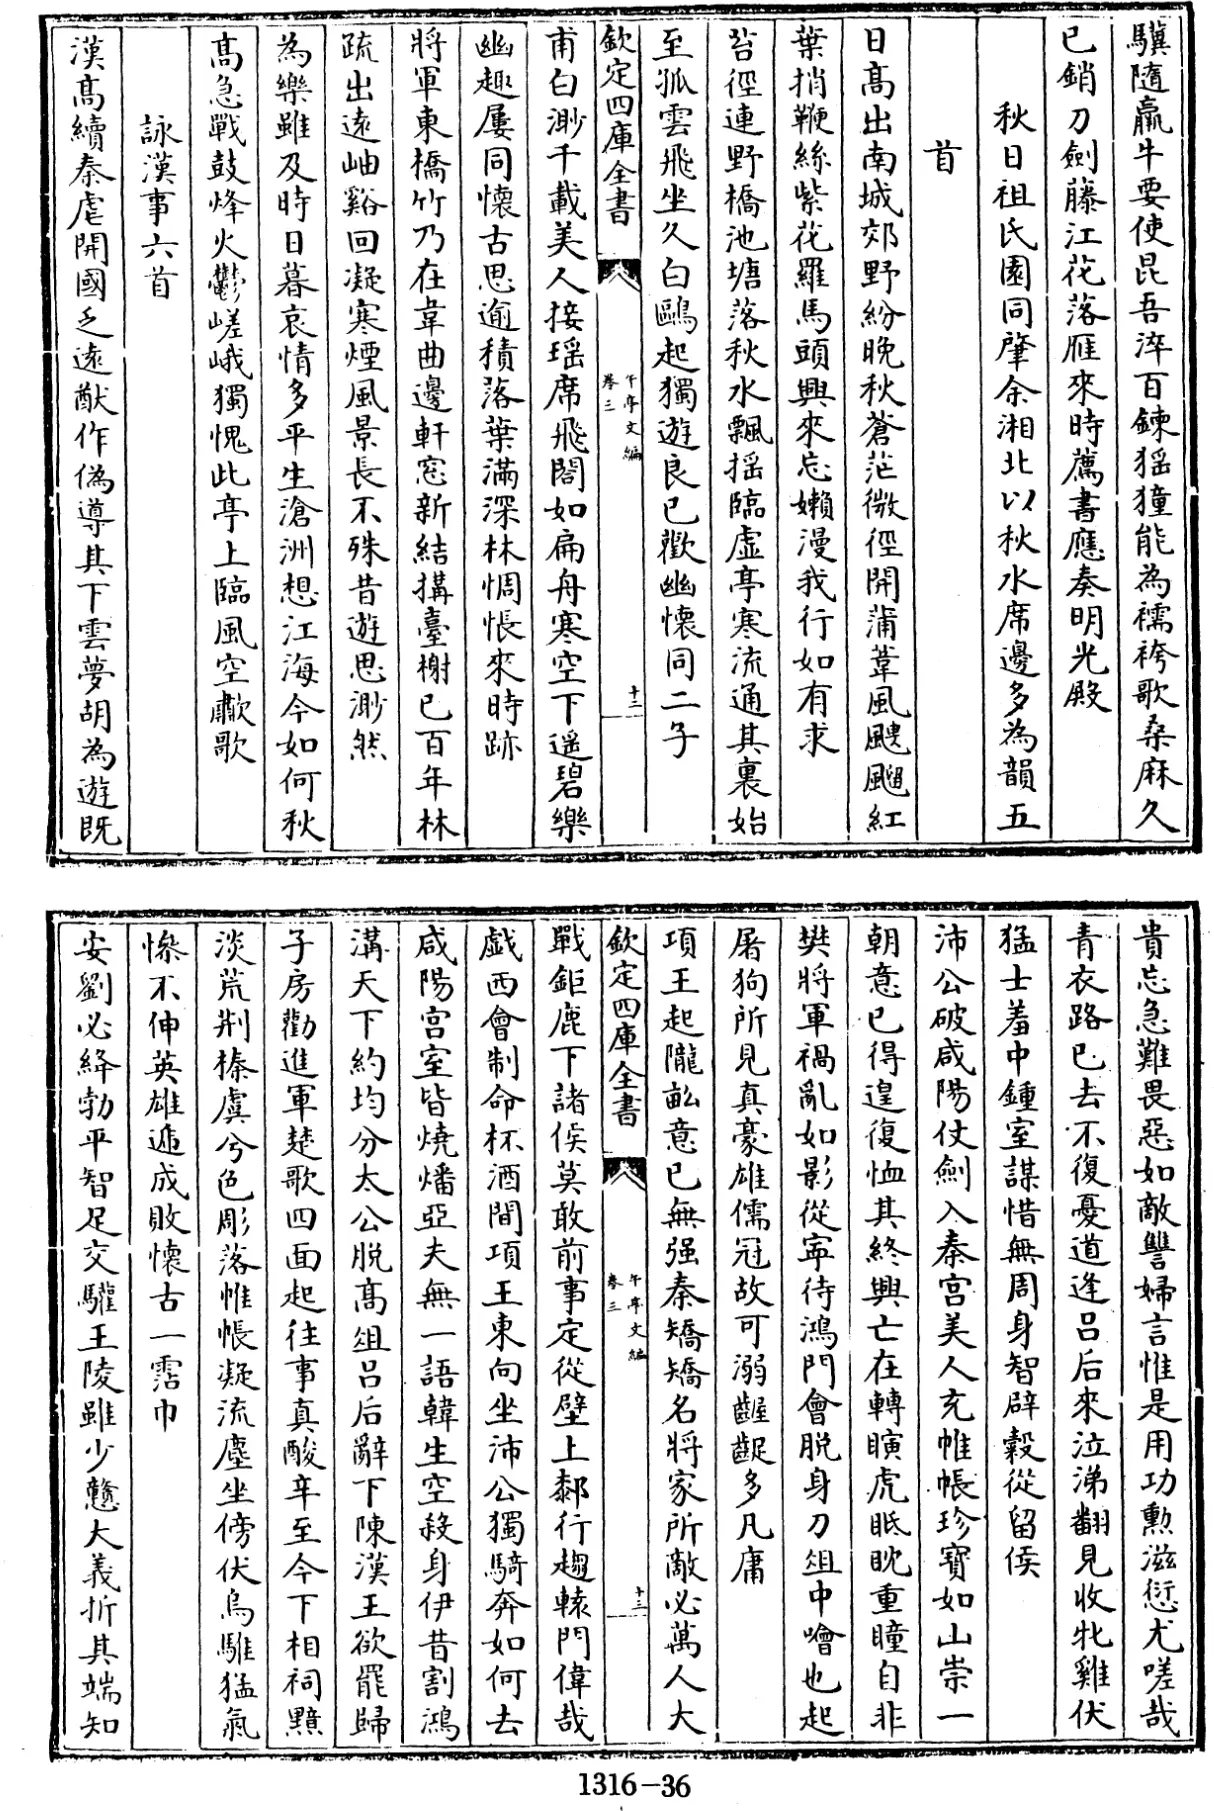 驥隨羸牛要使昆吾淬百鍊猺獞能為襦袴歌桑麻久
已銷刀劍藤江花落雁來時薦書應奏明光殿
秋日祖氏園同肇余湘北以秋水席邊多為韻五
首
日高出南城郊野紛晚秋蒼茫微徑開蒲葦風颼飀紅
葉捎鞭絲紫花羅馬頭興來忘嬾漫我行如有求
苔徑連野橋池塘落秋水飄揺臨虚亭寒流通其裏始
至孤雲飛坐久白鷗起獨遊良已歡幽懷同二子
欽定四庫全書
午亭文編
卷三
十二
甫白渺千載美人接瑶席飛閣如扁舟寒空下遥碧樂
幽趣屢同懷古思逾積落葉滿深林惆悵來時跡
將軍東橋竹乃在韋曲邊軒窓新結搆臺榭已百年林
疏出遠岫谿回凝寒煙風景長不殊昔遊思渺然
為樂雖及時日暮哀情多平生滄洲想江海今如何秋
髙急戰鼓烽火鬱嵯峨獨愧此亭上臨風空歗歌
詠漢事六首
漢髙續秦虐開國乏遠猷作偽導其下雲夢胡為遊既
貴忘急難畏惡如敵讐婦言惟是用功勲滋愆尤嗟哉
青衣路已去不復憂道逢吕后來泣涕翻見收牝雞伏
猛士羞中鍾室謀惜無周身智辟穀從留侯
沛公破咸陽仗劍入秦宫美人充帷帳珍寶如山崇一
朝意已得遑復恤其終興亡在轉瞚虎眂眈重瞳自非
樊將軍禍亂如影從寧待鴻門會脱身刀俎中噲也起
屠狗所見真豪雄儒冠故可溺齷齪多凡庸
項王起隴畝意已無强秦矯矯名將家所敵必萬人大
欽定四庫全書
午亭文編
卷三
十三
戰鉅鹿下諸侯莫敢前事定從壁上鄰行趨轅門偉哉
戲西會制命杯酒間項王東向坐沛公獨騎奔如何去
咸陽宫室皆燒燔亞夫無一語韓生空殺身伊昔割鴻
溝天下約均分太公脱髙俎吕后辭下陳漢王欲罷歸
子房勸進軍楚歌四面起往事真酸辛至今下相祠黯
淡荒荆榛虞兮色彫落帷帳凝流塵坐傍伏烏騅猛氣
慘不伸英雄遞成敗懷古一霑巾
安劉必絳勃平智足交驩王陵雖少戇大義折其端知
1316-36